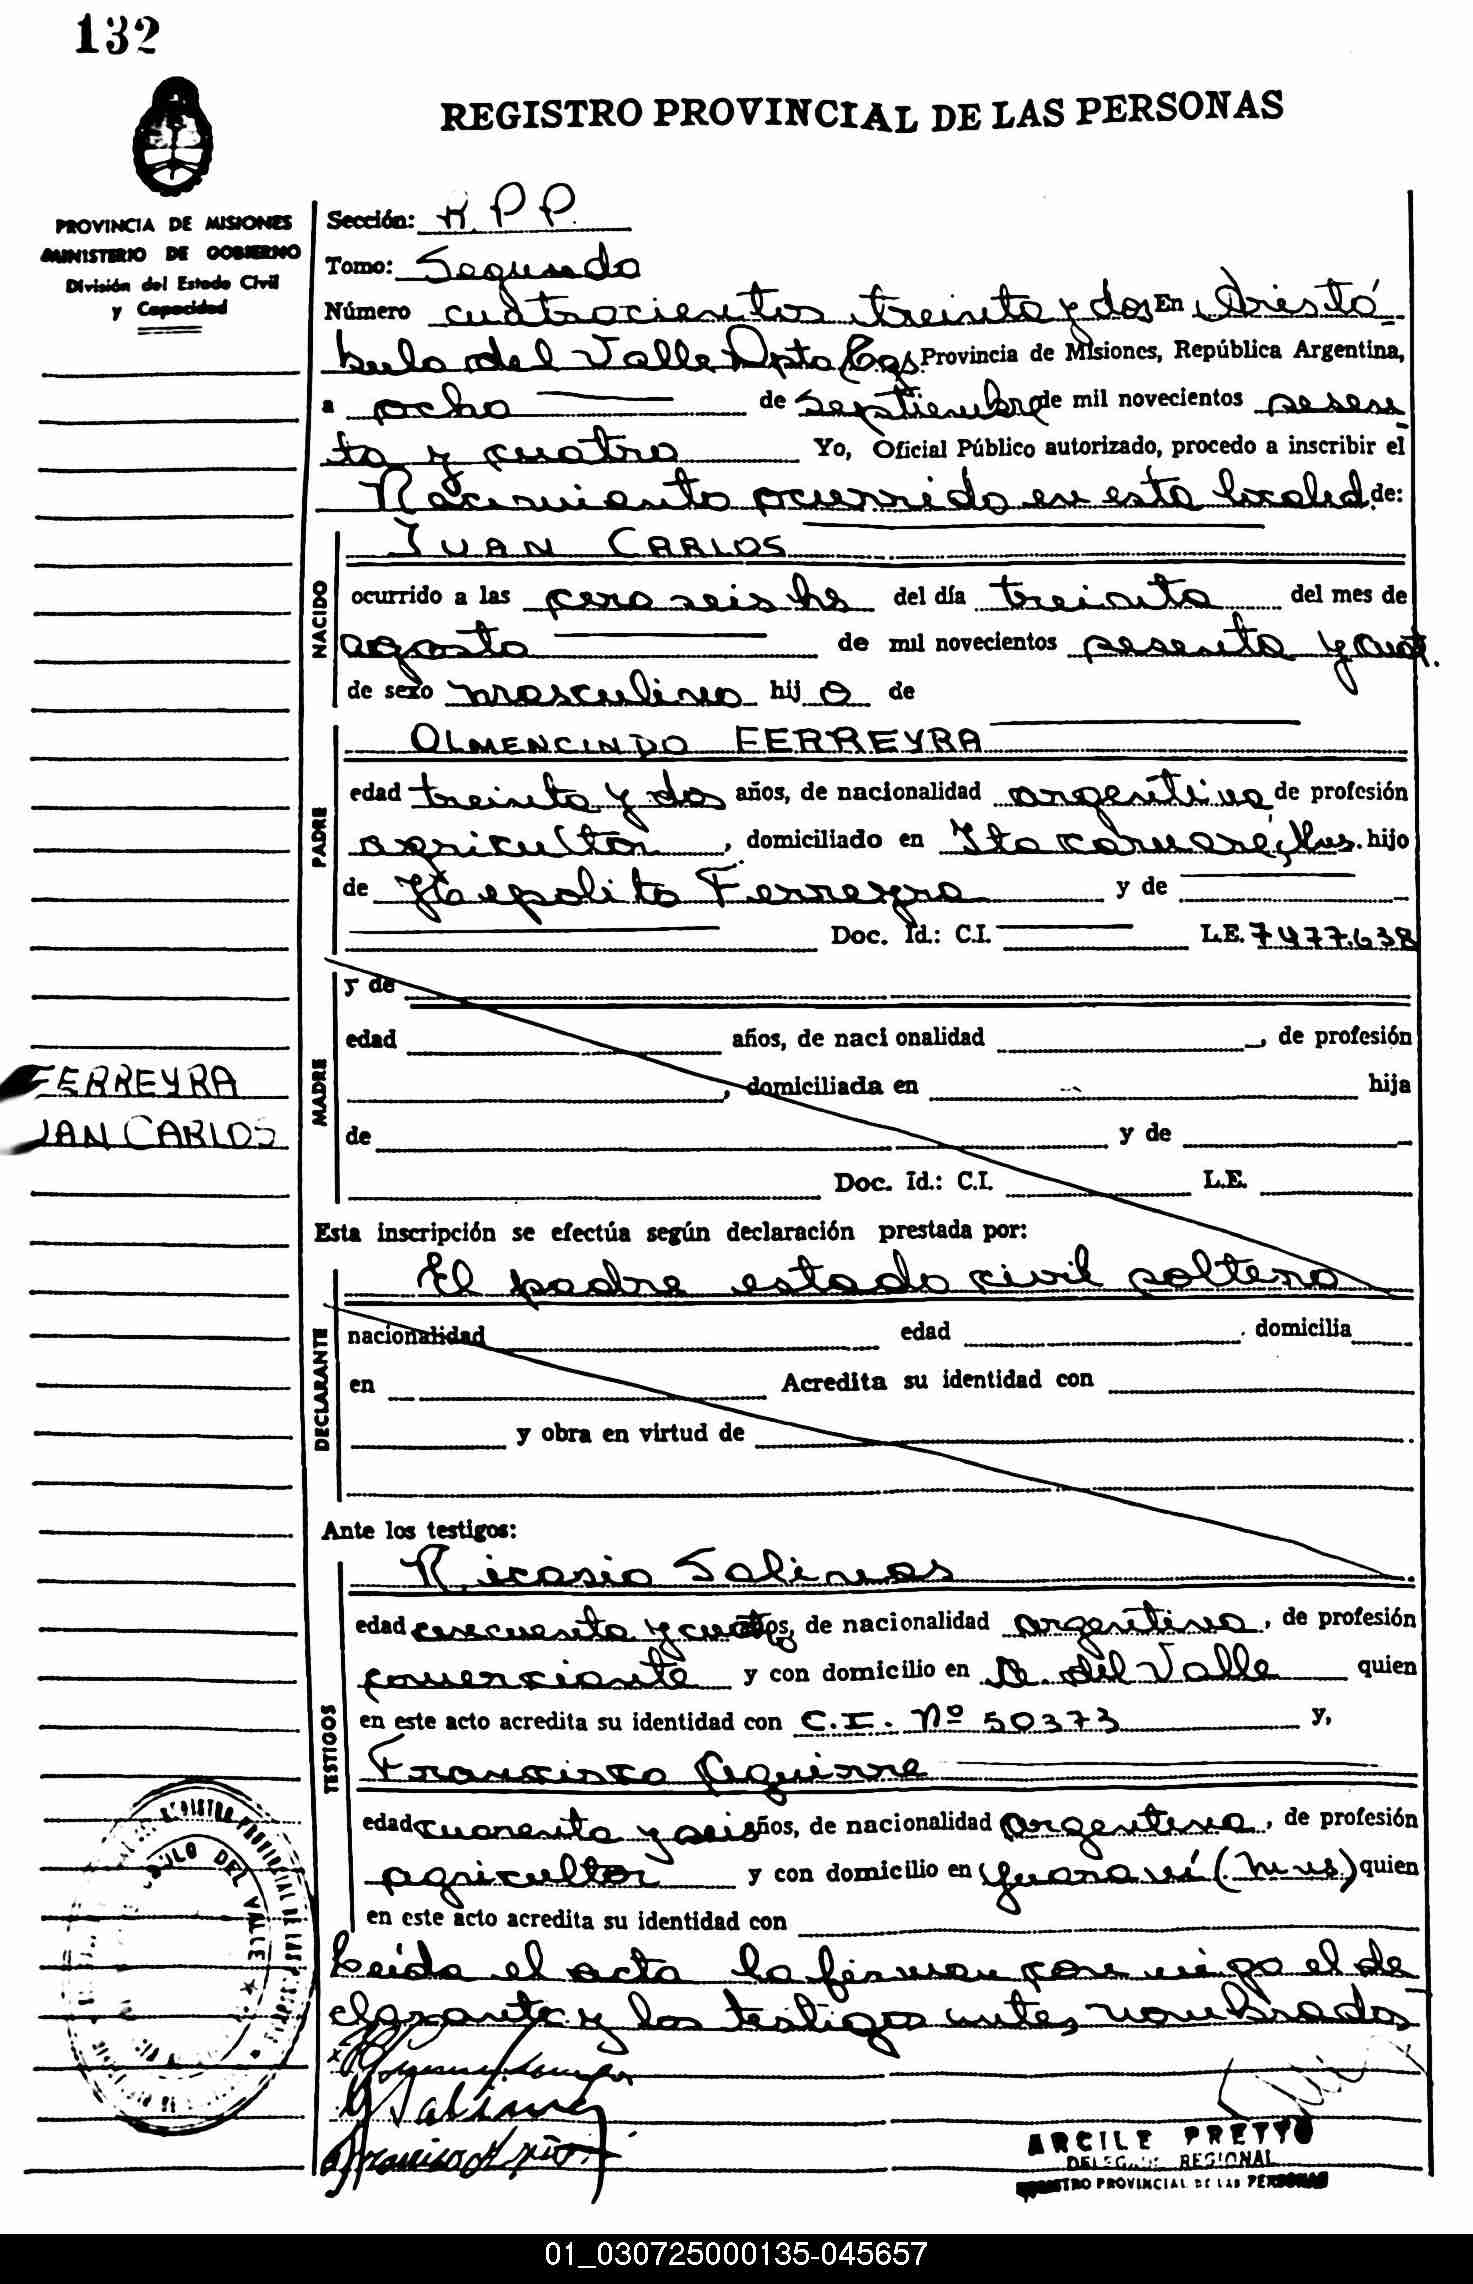 132
REGISTRO PROVINCIAL DE LAS PERSONAS
PROVINCIA DE MISIONES
MINISTERIO DE GOBIERNO
División del Estado Civil
y Capacidad
Sección: R.P.P.
Tomo: Segundo
Número cuatrocientos treinta y dos En Aristó
bulo del Valle Dpto Cgs. Provincia de Misiones, República Argentina,
a ocho de Septiembre de mil novecientos sesen
ta y cuatro Yo, Oficial Público autorizado, procedo a inscribir el
Nacimiento ocurrido en esta localid. de:
NACIDO
JUAN CARLOS
ocurrido a las cero seis hs del día treinta del mes de
agosto de mil novecientos sesenta y cuat.
de sexo masculino hij o de
PADRE
OLMENCINDO FERREYRA
edad treinta y dos años, de nacionalidad argentino de profesión
agricultor, domiciliado en Itacaruaré, Mns. hijo
de Ferreyra y de
Doc. Id.: C.I. L.E. 7477.638
MADRE
y de
edad años, de naci onalidad , de profesión
, domiciliada en hija
de y de
Doc. Id.: C.I. L.E.
FERREYRA
JAN CARLOS
Esta inscripción se efectúa según declaración prestada por:
DECLARANTE
El padre estado civil soltero
nacionalidad edad domicilia
en Acredita su identidad con
y obra en virtud de
Ante los testigos:
TESTIGOS
Nicasio Salinas
edad cincuenta y cuat. años, de nacionalidad argentino, de profesión
comerciante y con domicilio en A. del Valle quien
en este acto acredita su identidad con C.I. Nº 50373 y,
Francisco Aguirre
edad cuarenta y seis años, de nacionalidad argentino, de profesión
agricultor y con domicilio en Guaraní (Mns) quien
en este acto acredita su identidad con
Leída el acta la firman con migo el de
clarante y los testigos antes nombrados
Salinas
REGISTRO PROVINCIAL DE LAS
BULO DEL VALLE
ARCILE PRETTO
DELEGADO REGIONAL
REGISTRO PROVINCIAL DE LAS PERSONAS
01_030725000135-045657